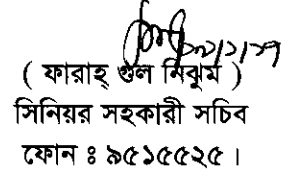 ( ফারাহ্ গুল নিঝুম )
সিনিয়র সহকারী সচিব
ফোন ঃ ৯৫১৫৫২৫ ।